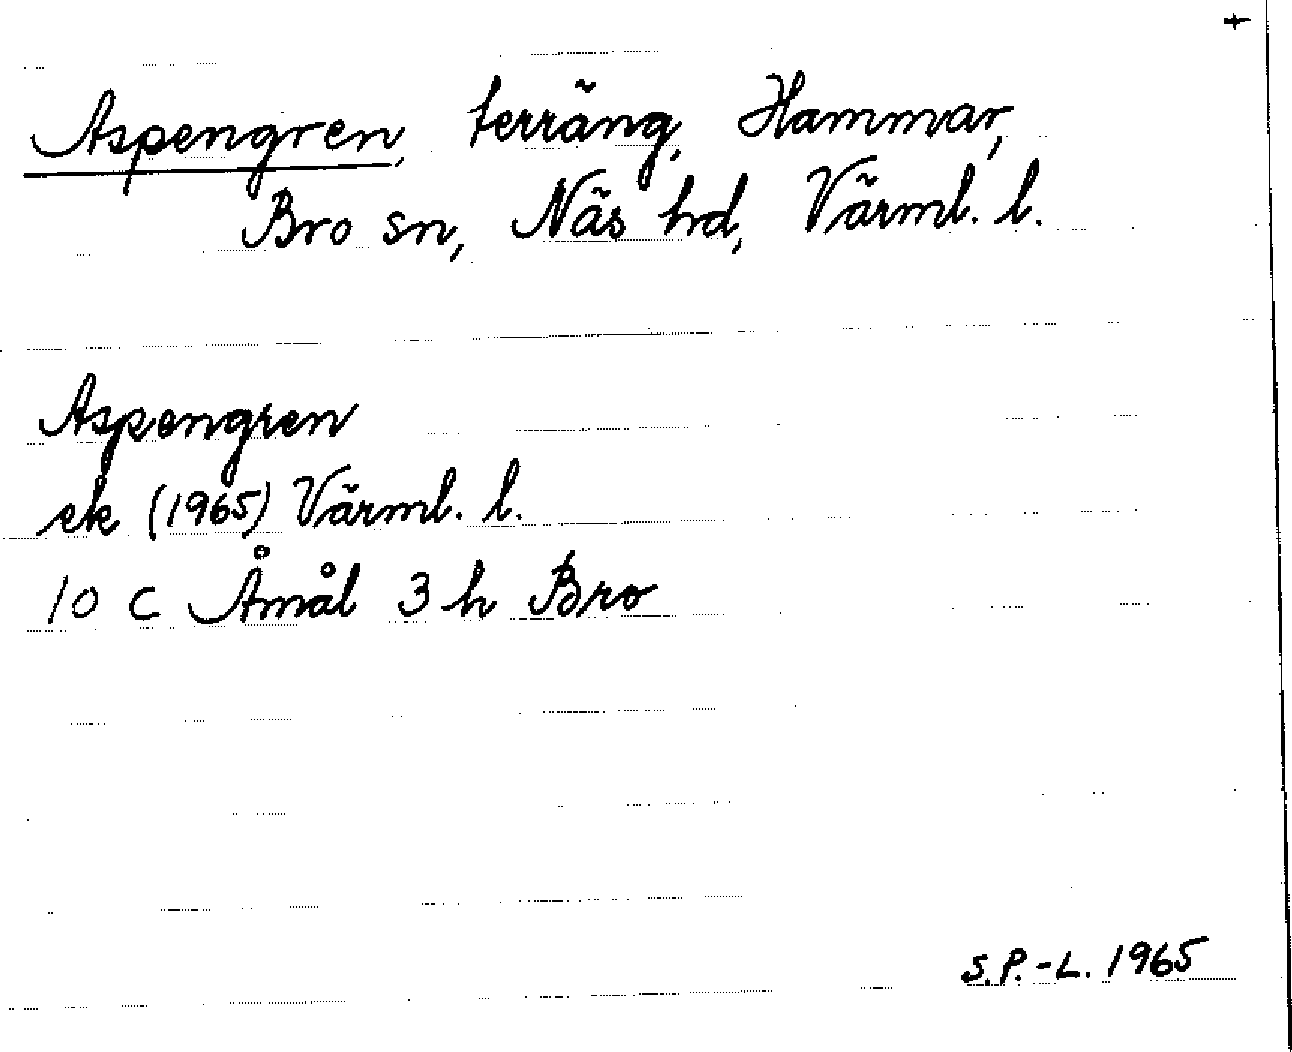 +
Aspengren, terräng, Hammar,
Bro sn, Näs hd, Värml. l.
Aspengren
ek (1965) Värml. l.
10 C Åmål 3 h Bro
S.P.-L. 1965